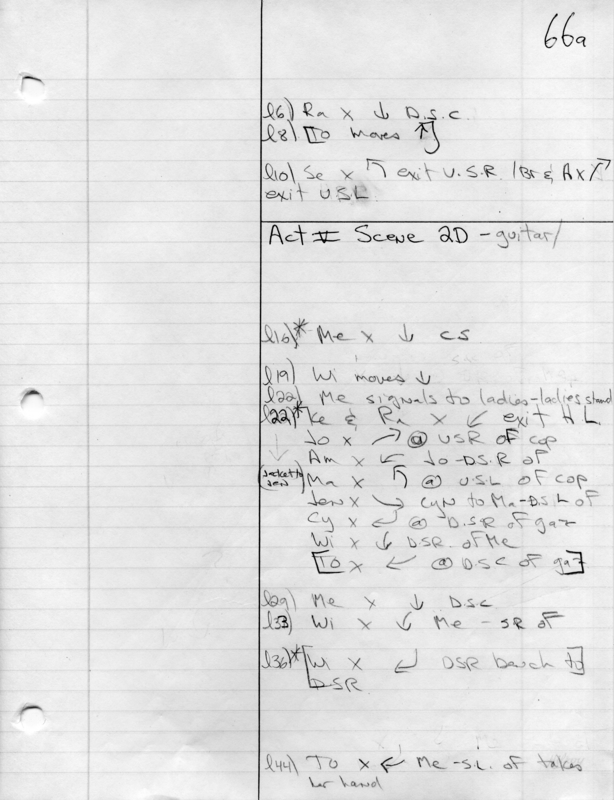 66a
l6) Ra x ↓ D.S.C.
l8) [To moves ↑]
l10) Se x ↖ exit U.S.R. / Br & A x ↗
exit U.S.L
Act II Scene 2D - guitar/
l16)* Me x ↓ CS
l19) Wi moves ↓
l22) Me signals to ladies-ladies stand
l22)* Ke & Ra x ↙ exit H L
Jo x ↗ @ USR of cop
Am x ← Jo -DS.R of
(Jacket to Jen) Ma x ↖ @ U.S.L of cop
Jen x ↘ Cyn to Ma-D.S.L of
Cy x ↙ @ D.S.R of gaz
Wi x ↓ DSR. of Me
[To x ↙ @ DSC of gaz]
l29) Me x ↓ DSC
l33) Wi x ↓ Me - SR of
l36)* [Wi x ↙ DSR bench to]
DSR
l44) To x ↙ Me -S.L. of takes
her hand